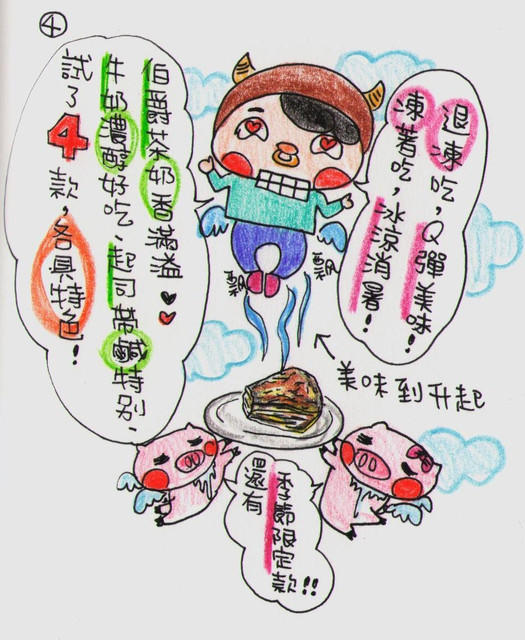 ④
退凍吃,Q彈美味!
凍著吃,冰涼消暑!
試了4款,各具特色!
牛奶濃醇好吃、起司帶鹹特別、
伯爵茶奶香滿溢
飄
飄
美味到升起
還有
季節限定款!!